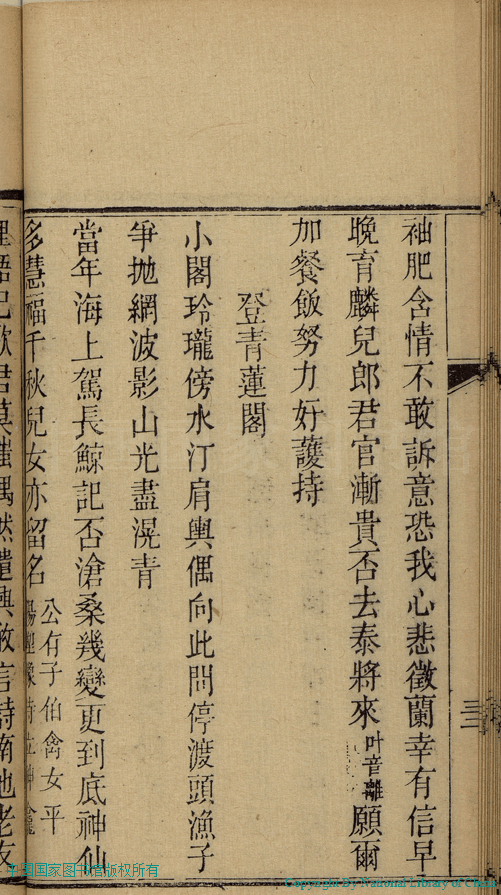 袖肥含情不敢訴意恐我心悲徵蘭幸有信早
晚育麟兒郎君官漸貴否去泰將來叶音離願爾
加餐飯努力好護持
登青蓮閣
小閣玲瓏傍水汀肩輿偶向此間停渡頭漁子
爭拋網波影山光盡滉青
當年海上駕長鯨記否滄桑幾變更到底神仙
多慧福千秋兒女亦留名公有子伯禽女平
陽塑像侍立神龕
君莫嗤偶然遣興敢言詩南池老友
三
中国国家图书馆版权所有
Copyright By National Library of China